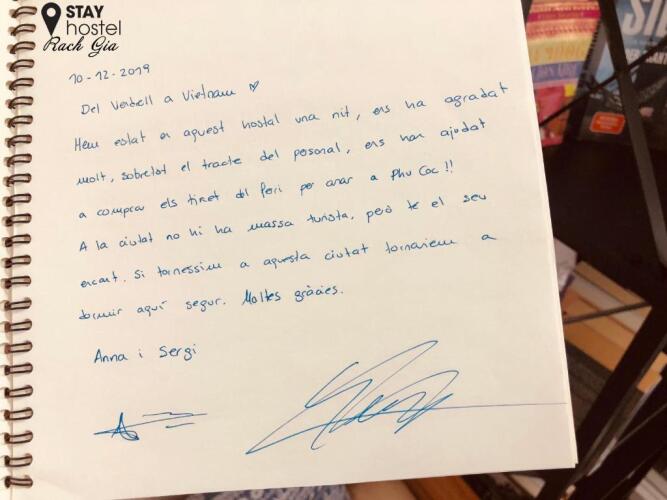 STAY
hostel
Rach Gia
10-12-2019
Del Vendrell a Vietnam ♡
Hem estat en aquest hostal una nit, ens ha agradat
molt, sobretot el tracte del personal, ens han ajudat
a comprar els tiket del feri per anar a Phu Coc!!
A la ciutat no hi ha massa turista, però te el seu
encant. Si tornessim a aquesta ciutat tornariem a
dormir aquí segur. Moltes gràcies.
Anna i Sergi